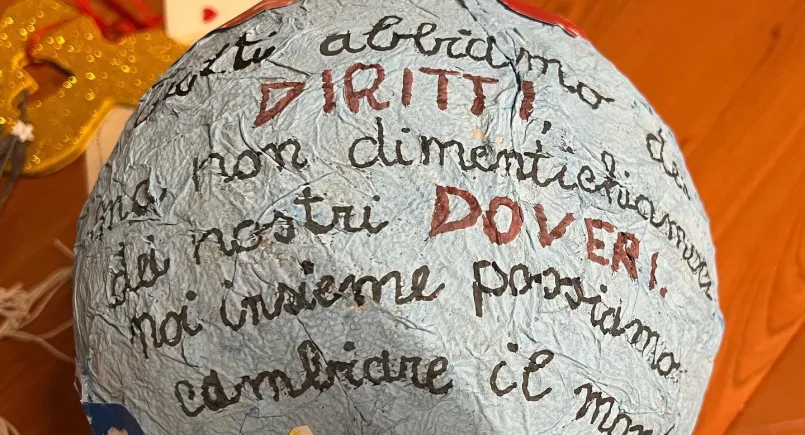 Tutti abbiamo dei
DIRITTI,
ma non dimentichiamoci
dei nostri DOVERI.
noi insieme possiamo
cambiare il mon